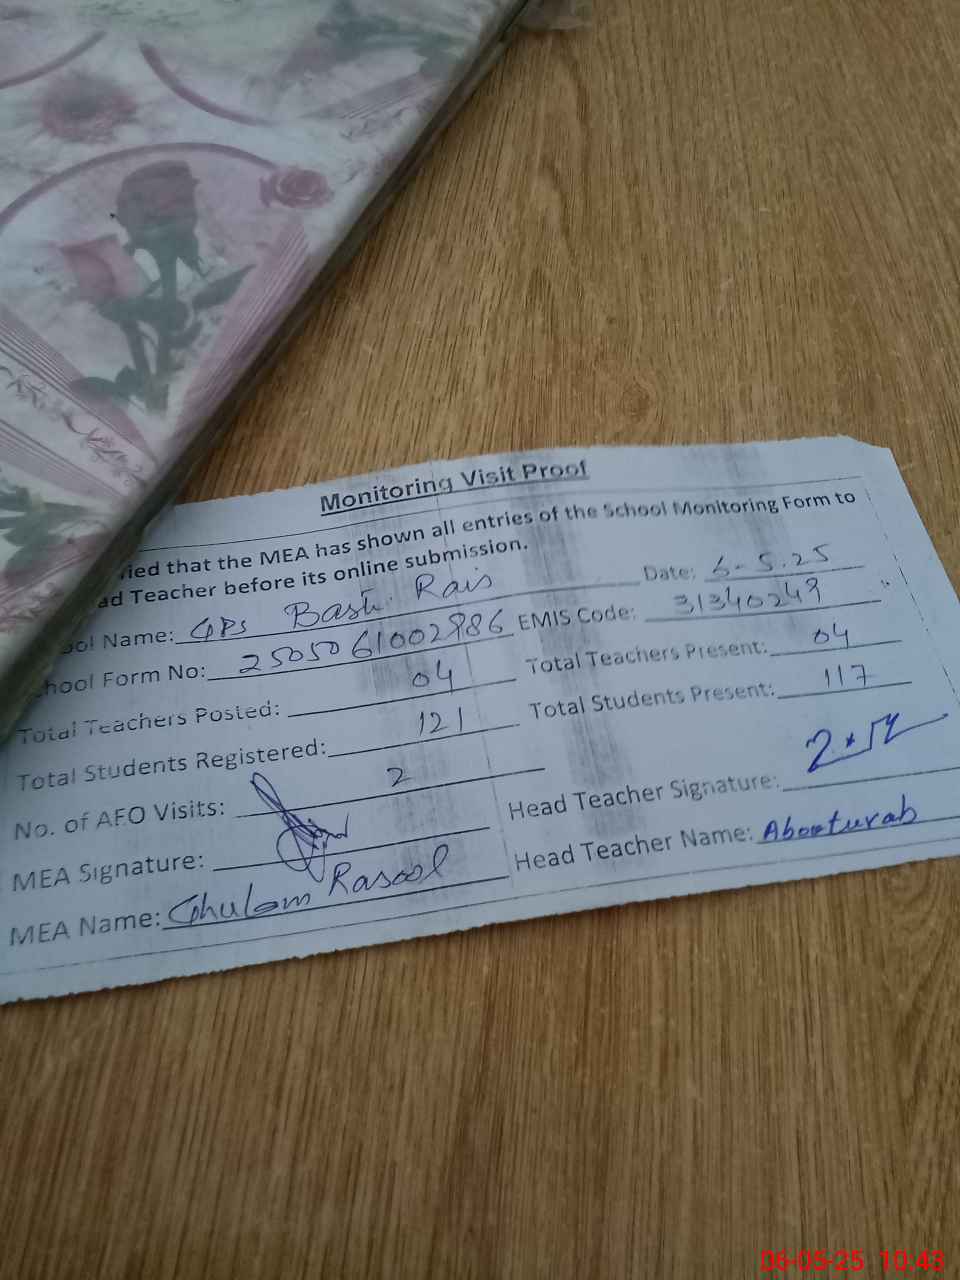 Monitoring Visit Proof
ied that the MEA has shown all entries of the School Monitoring Form to
ad Teacher before its online submission.
ool Name: GPS Basti Rais Date: 6-5.25
chool Form No: 2505061002986 EMIS Code: 31340249
Total Teachers Posted: 04 Total Teachers Present: 04
Total Students Registered: 121 Total Students Present: 117
No. of AEO Visits: 2
MEA Signature: Head Teacher Signature:
MEA Name: Ghulam Rasool Head Teacher Name: Abooturab
06-05-25 10:43